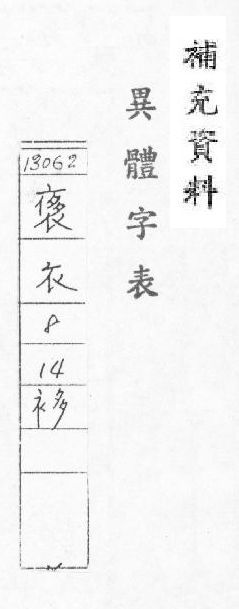 補充資料
異體字表
13062
衣
8
14
袳